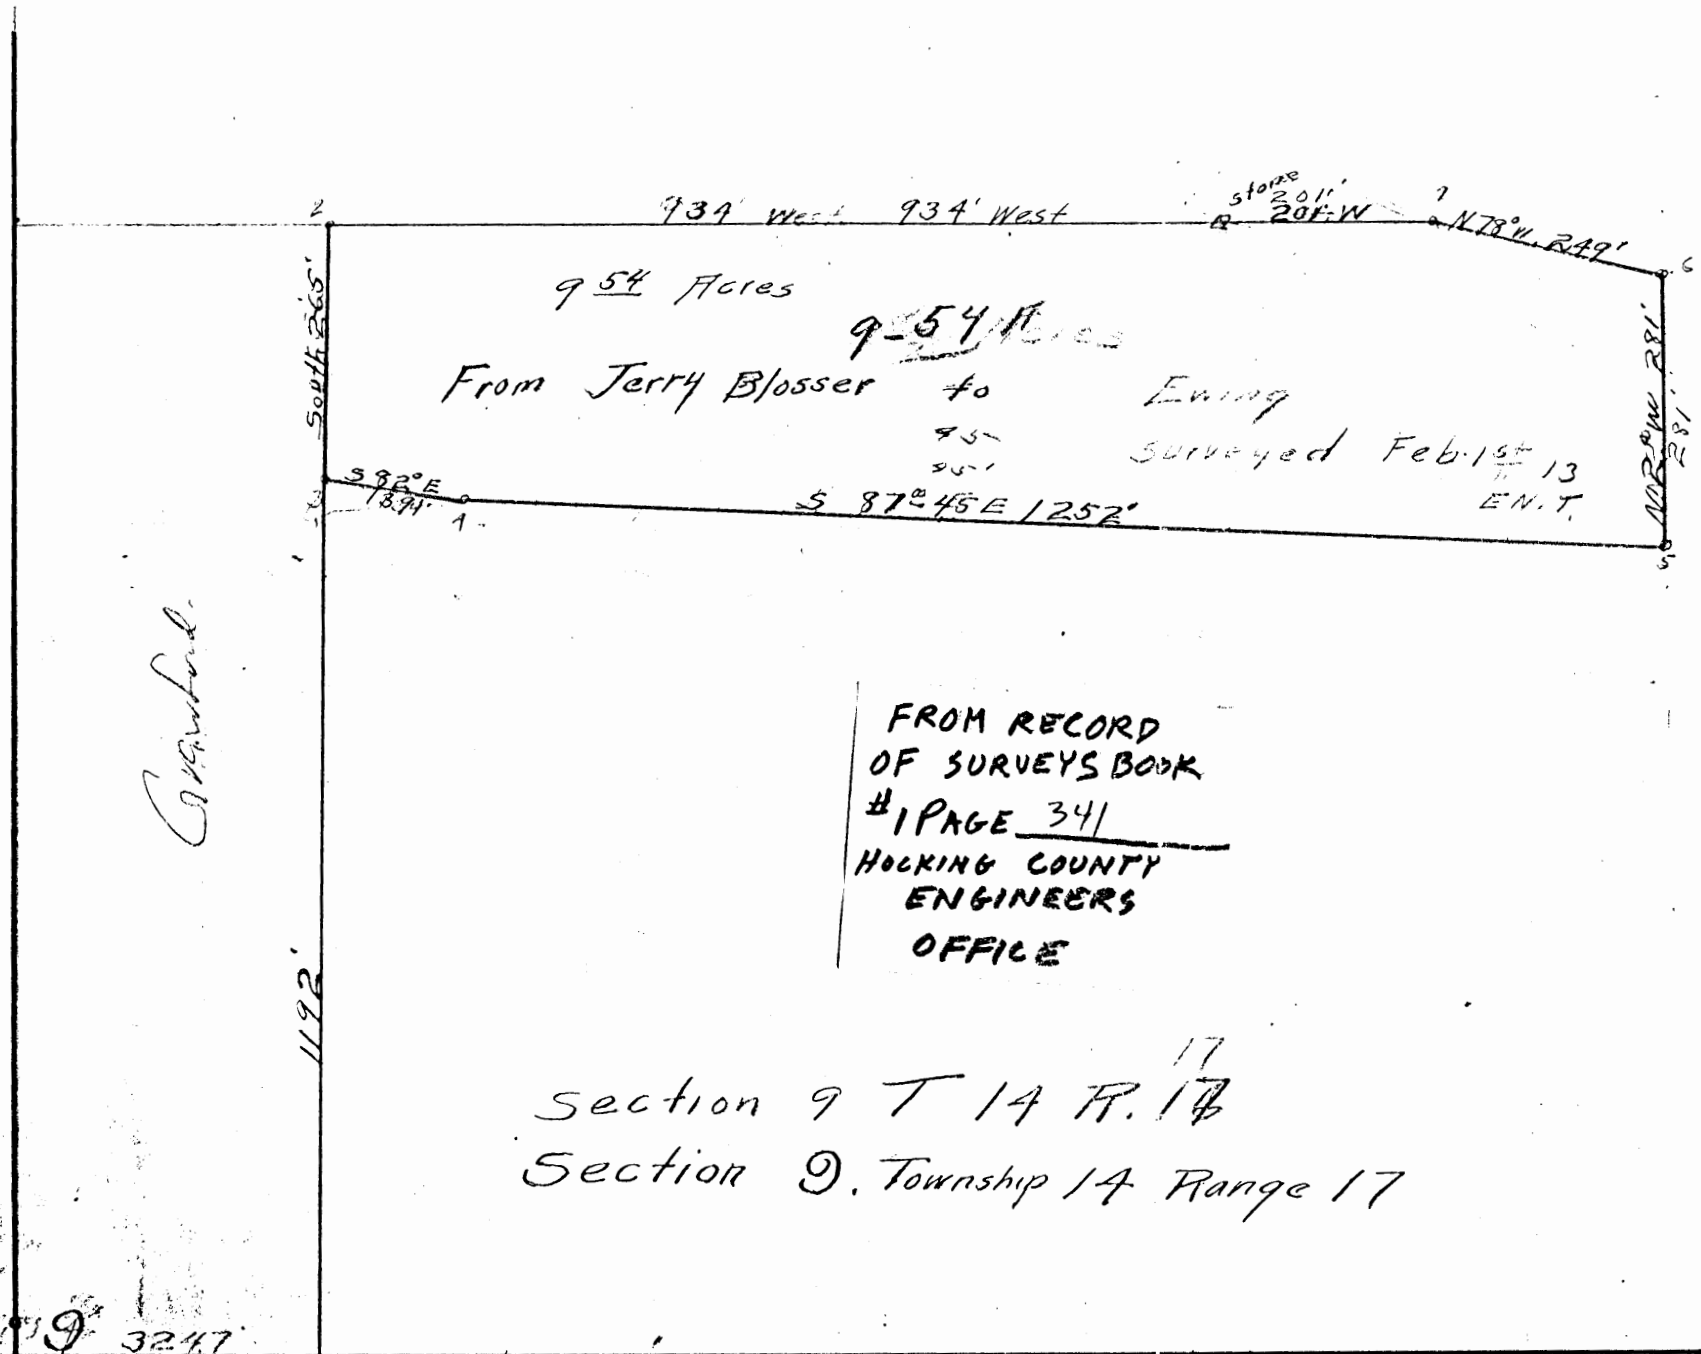 2
934' West 934' West
stone
201'
201' W
7
N 78° W. 249'
6
South 265'
9 54 Acres
9-54 Acres
From Jerry Blosser to Ewing
95
951
Surveyed Feb. 1st 13
E.N.T.
281'
281'
S 82° E
139'
4
S 87° 45 E 1252'
5
Crawford.
FROM RECORD
OF SURVEYS BOOK
#1 PAGE 341
HOCKING COUNTY
ENGINEERS
OFFICE
1192'
17
Section 9 T 14 R. 17
Section 9. Township 14 Range 17
9 3247